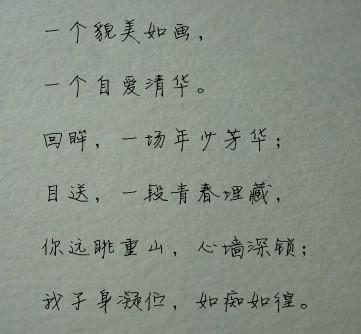 一个貌美如画，
一个自爱清华。
回眸，一场年少芳华；
目送，一段青春埋藏，
你远眺重山，心墙深锁；
我孑身凝伫，如痴如徨。